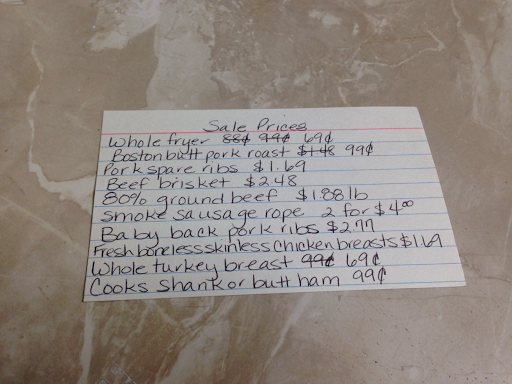 Sale Prices
Whole fryer 88¢ 99¢ 69¢
Boston butt pork roast $1.48 99¢
Pork spare ribs $1.69
Beef brisket $2.48
80% ground beef $1.88 lb
Smoke sausage rope 2 for $4.00
Baby back pork ribs $2.77
Fresh boneless skinless chicken breasts $1.69
Whole turkey breast 99¢ 69¢
Cooks shank or butt ham 99¢